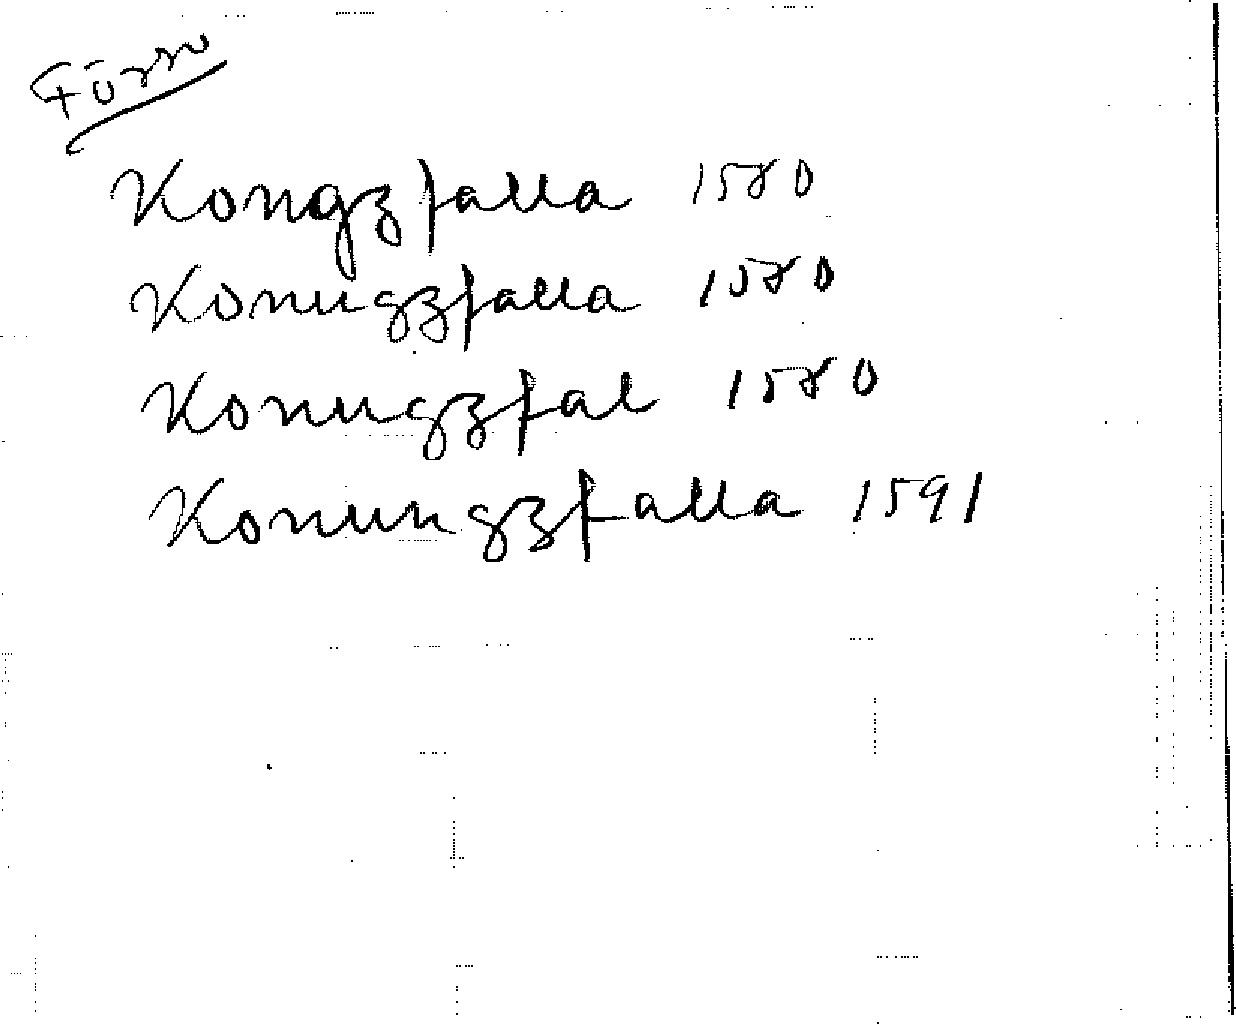 Förro
Kongzfalla 1580
Konugzfalla 1580
Konugzfal 1580
Konungzfalla 1591